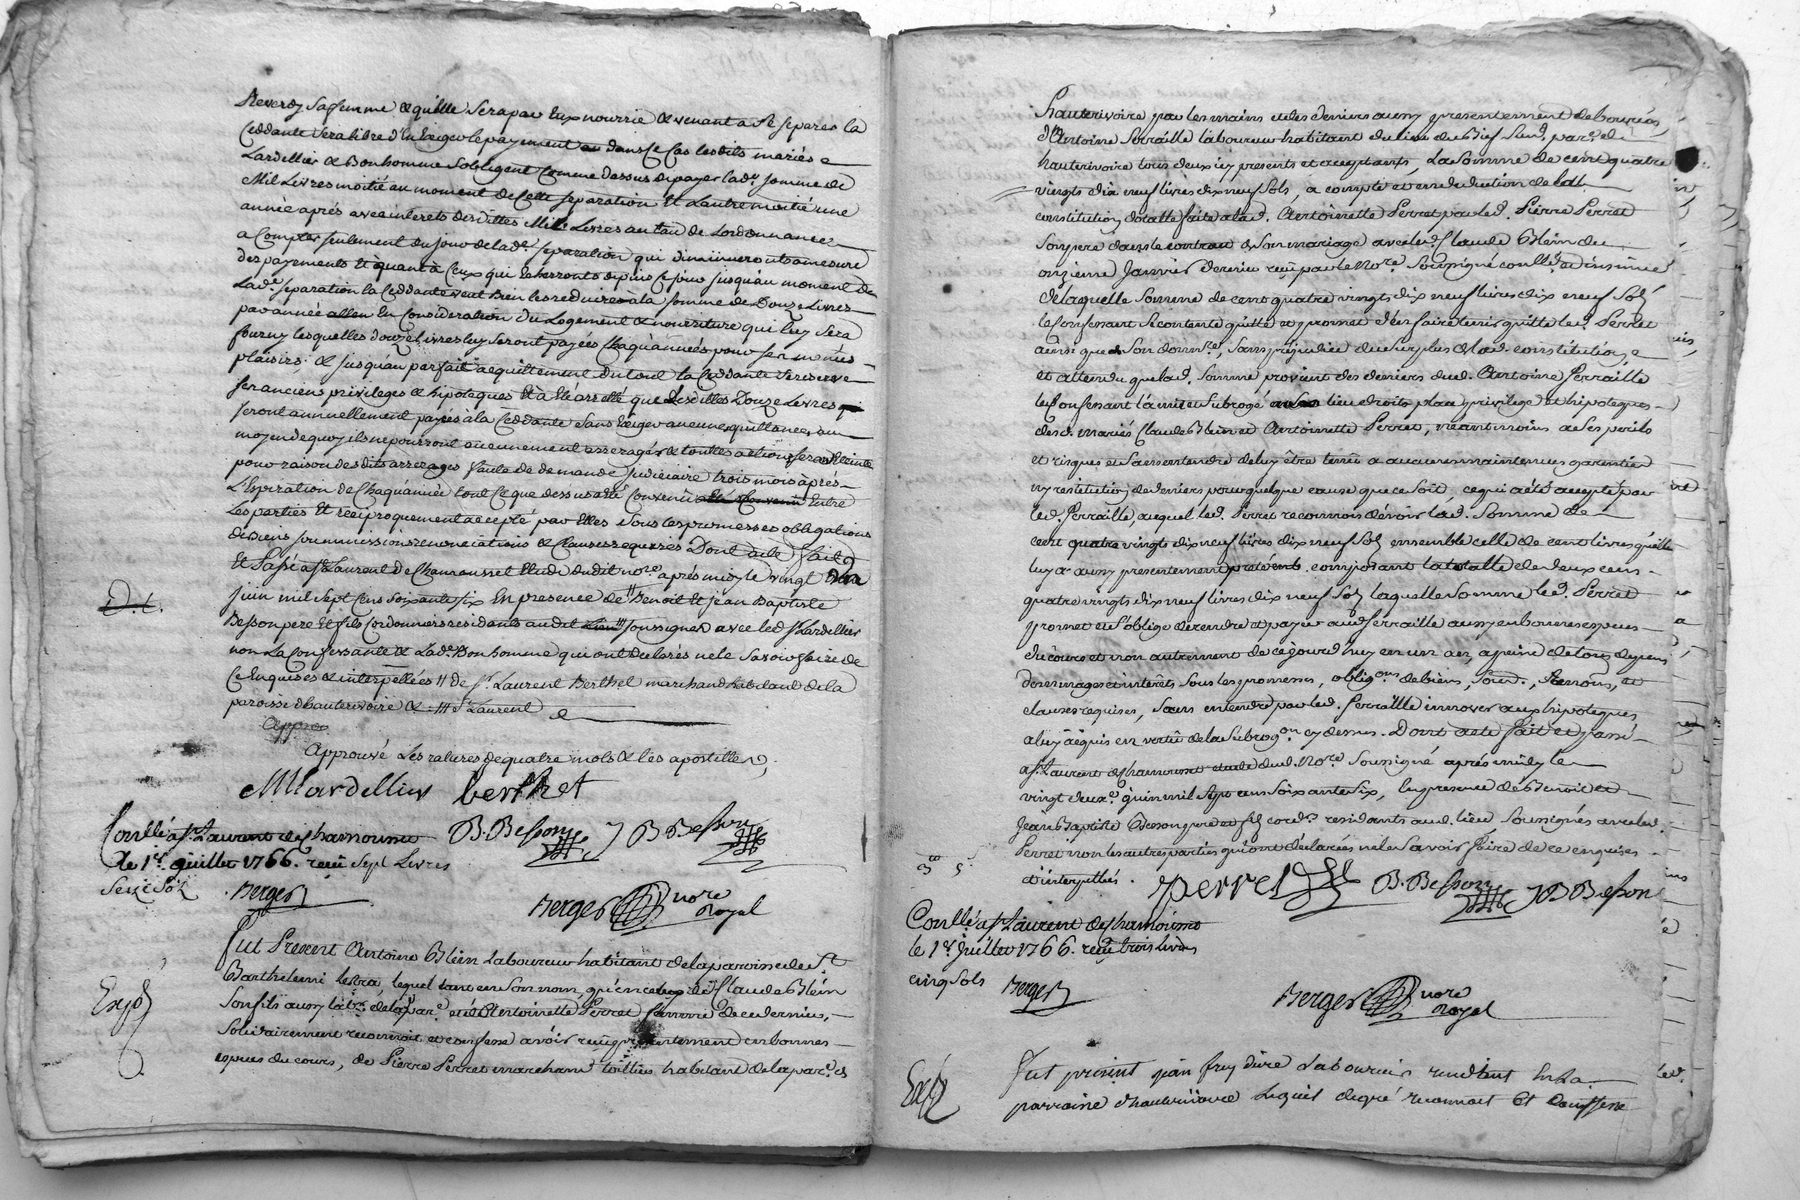 Reverdy sa femme & qu'elle sera par Eux nourrie & venant a se separer la
Ceddante sera libre d'En Exiger le payement dans ce Cas lesdits mariés
Lardellier & Bonhomme sobligent Comme dessus de payer lad.e somme de
Mil Livres moitié au moment de Cette separation Et L'autre moitié une
année aprés avec interets desdittes Mille Livres au taux de Lordonnance
a Compter seulement du jour de lad.e separation qui diminueront a mesure
des payements Et quant à Ceux qui Echerront depuis Ce jour jusqu'au moment de
Lad.e separation la Ceddante veut bien les reduire a la somme de Douze Livres
par année En Consideration du Logement & nourriture qui luy sera
fourny lesquelles douze Livres luy seront payées Chaqu'années pour ses menus
plaisirs, & jusqu'au parfait acquittement du tout la Ceddante se reserve
ses anciens privileges & hipoteques Et à Eté arresté que lesdittes Douze Livres
seront annuellement payés à la Ceddante sans Exiger aucunes quittances au
moyen de quoy ils ne pourront aucunement arreragér & touttes actions seront Eteinte
pour raison desdits arrerages faute de demande judiciaire trois mois aprés
L'Expiration de Chaqu'année tout Ce que dessus a été Convenu Entre
Les parties Et reciproquement accepté par Elles sous les promesses obligations
de biens soummissions renonciations & Clauses requises Dont acte fait
Et Passé a St Laurent de Chamousset Etude dudit no.re aprés midy le vingt
juin mil sept Cens soixante six En presence de Benoit Et jean Baptiste
Besson pere Et fils Cordonniers residants audit soussignés avec led. s.r Lardellier
non La Confessante & Lad.e Bonhomme qui ont declarés ne le savoir faire de
Ce Enquises & interpellées // de s.r Laurent Berthet marchand habitant de la
paroisse dhauterivoire & /// St Laurent
Approuvé Les ratures de quatre mots & les apostilles
MLardellier berthet
Conllé a St Laurent de Chamousset B. Besson J B Besson
le 1.er juillet 1766. reçu sept Livres
seize sols Berger
Berger nore
royal
Fut Present Antoine Blein Laboureur habitant de la paroisse de St
Barthelemi lestra, lequel tant en son nom, qu'en celuy de Claude Blein
son fils aussy lab.r de lad. par.e et d'Antoinette Perret femme de ce dernier,
solidairement reconnoit et confesse avoir reçu presentement en bonnes
especes du cours, de Pierre Perret marchand toillier habitant de la par.e d
Expé
hauterivoire par les mains et des deniers aussy presentement deboursés
d'Antoine Ferraille laboureur habitant du lieu du Bief Sus.d par.e d
hauterivoire tous deux icy presents et acceptants, La somme de cent quatre
vingts dix neuf livres dix neuf sols, a compte et en deduction de lad.
constitution dotalle faite a lad. Antoinette Perret par led. Pierre Perret
son pere dans le contrat de son mariage avec led. Claude Blein du
onzieme Janvier dernier reçu par le no.re soussigné conllé et insinué
de laquelle somme de cent quatre vingts dix neuf livres dix neuf sols
le Confessant se contente quitte et promet d'en faire tenir quitte led. Perret
ainsi que son dom.ne, sans prejudice du surplus de lad. constitution,
et attendu que lad. somme provient des deniers dud. Antoine Ferraille
le Confessant l'a mis et subrogé lieu droits place privilege et hipoteques
desd. mariés Claude Blein et Antoinette Perret, néantmoins a ses perils
et risques et sans entendre de luy être tenu a aucunes maintenues garenties
ny restitution de deniers pour quelque cause que ce soit, ce qui a été accepté par
led. Ferraille, auquel led. Perret reconnois devoir lad. somme de
cent quatre vingts dix neuf livres dix neuf sols ensemble celle de cent livres qu'elle
luy a aussy presentement composant la totalle de deux cens
quatre vingts dix neuf livres dix neuf sols laquelle somme led. Perret
promet et s'oblige de rendre et payer aud. Ferraille aussy en bonnes especes
du cours et non autrement de ce jourd'huy en un an, a peine de tous depens
domages et intérêts sous les promesses, oblig.ons de biens, soum., Renons, et
clauses requises, sans entendre par led. Ferraille innover aux hipoteques
a luy acquis en vertu de la subrog.on cy dessus. Dont acte fait et passé
a St Laurent de Chamousset etude dud. No.re soussigné aprés midy le
vingt deux.e juin mil sept cens soixante six, En presence de Benoit et
Jean Baptiste Besson pere et fils cord.rs residants aud. lieu soussignés avec led.
Perret non les autres parties qui ont déclarées ne le savoir faire de ce enquises
et interpellés. perret B. Besson J B Besson
3tt 5s
Conllé a St Laurent de Chamousset
le 1.er Juillet 1766. reçu trois livres
cinq sols Berger
Berger nore
royal
Expé
Fut présent jean Laboureur residant En La
parroisse d'hauterivoire Lequel degré reconnoit Et Confesse